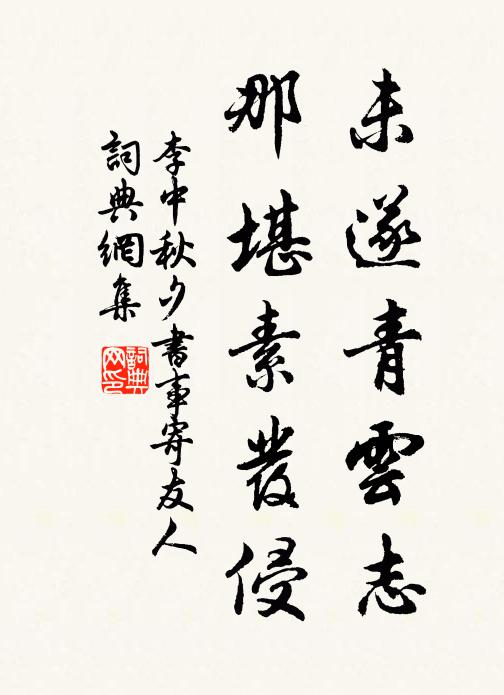 未遂青雲志
那堪素發侵
李中秋夕書事寄友人
詞典網集
詞典
网印